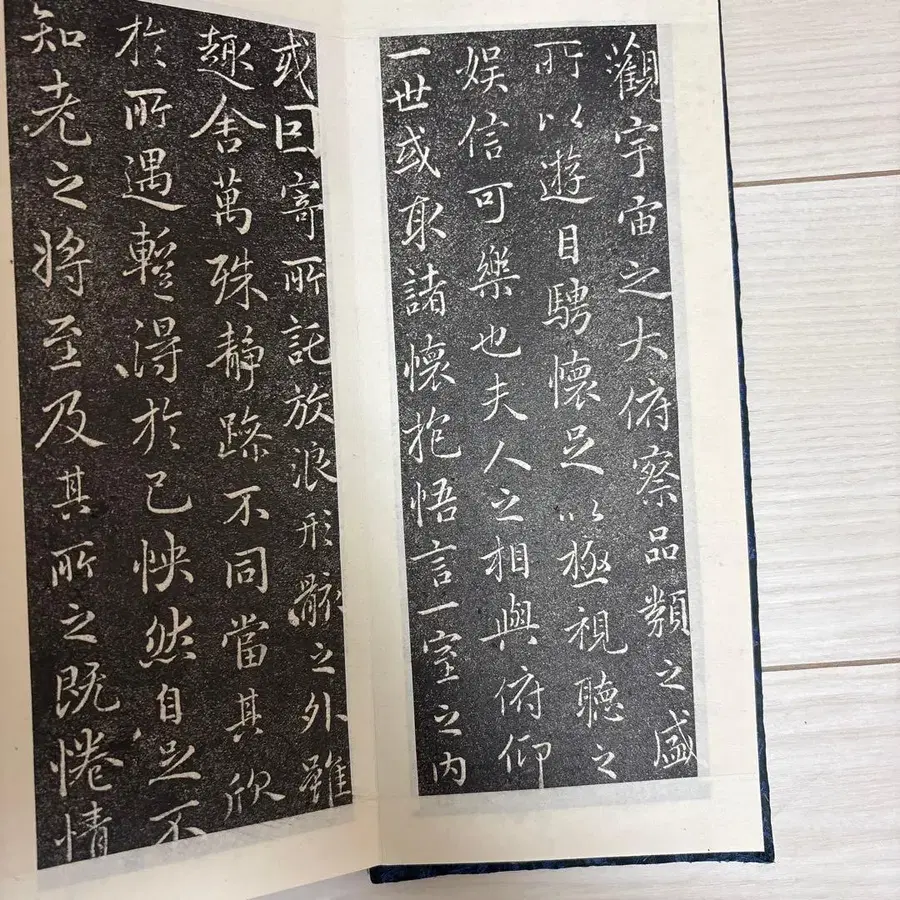 觀宇宙之大俯察品類之盛
所以遊目騁懷足以極視聽之
娱信可樂也夫人之相與俯仰
一世或取諸懷抱悟言一室之内
或因寄所託放浪形骸之外雖
趣舍萬殊靜躁不同當其欣
於所遇蹔得於己怏然自足不
知老之將至及其所之既惓情